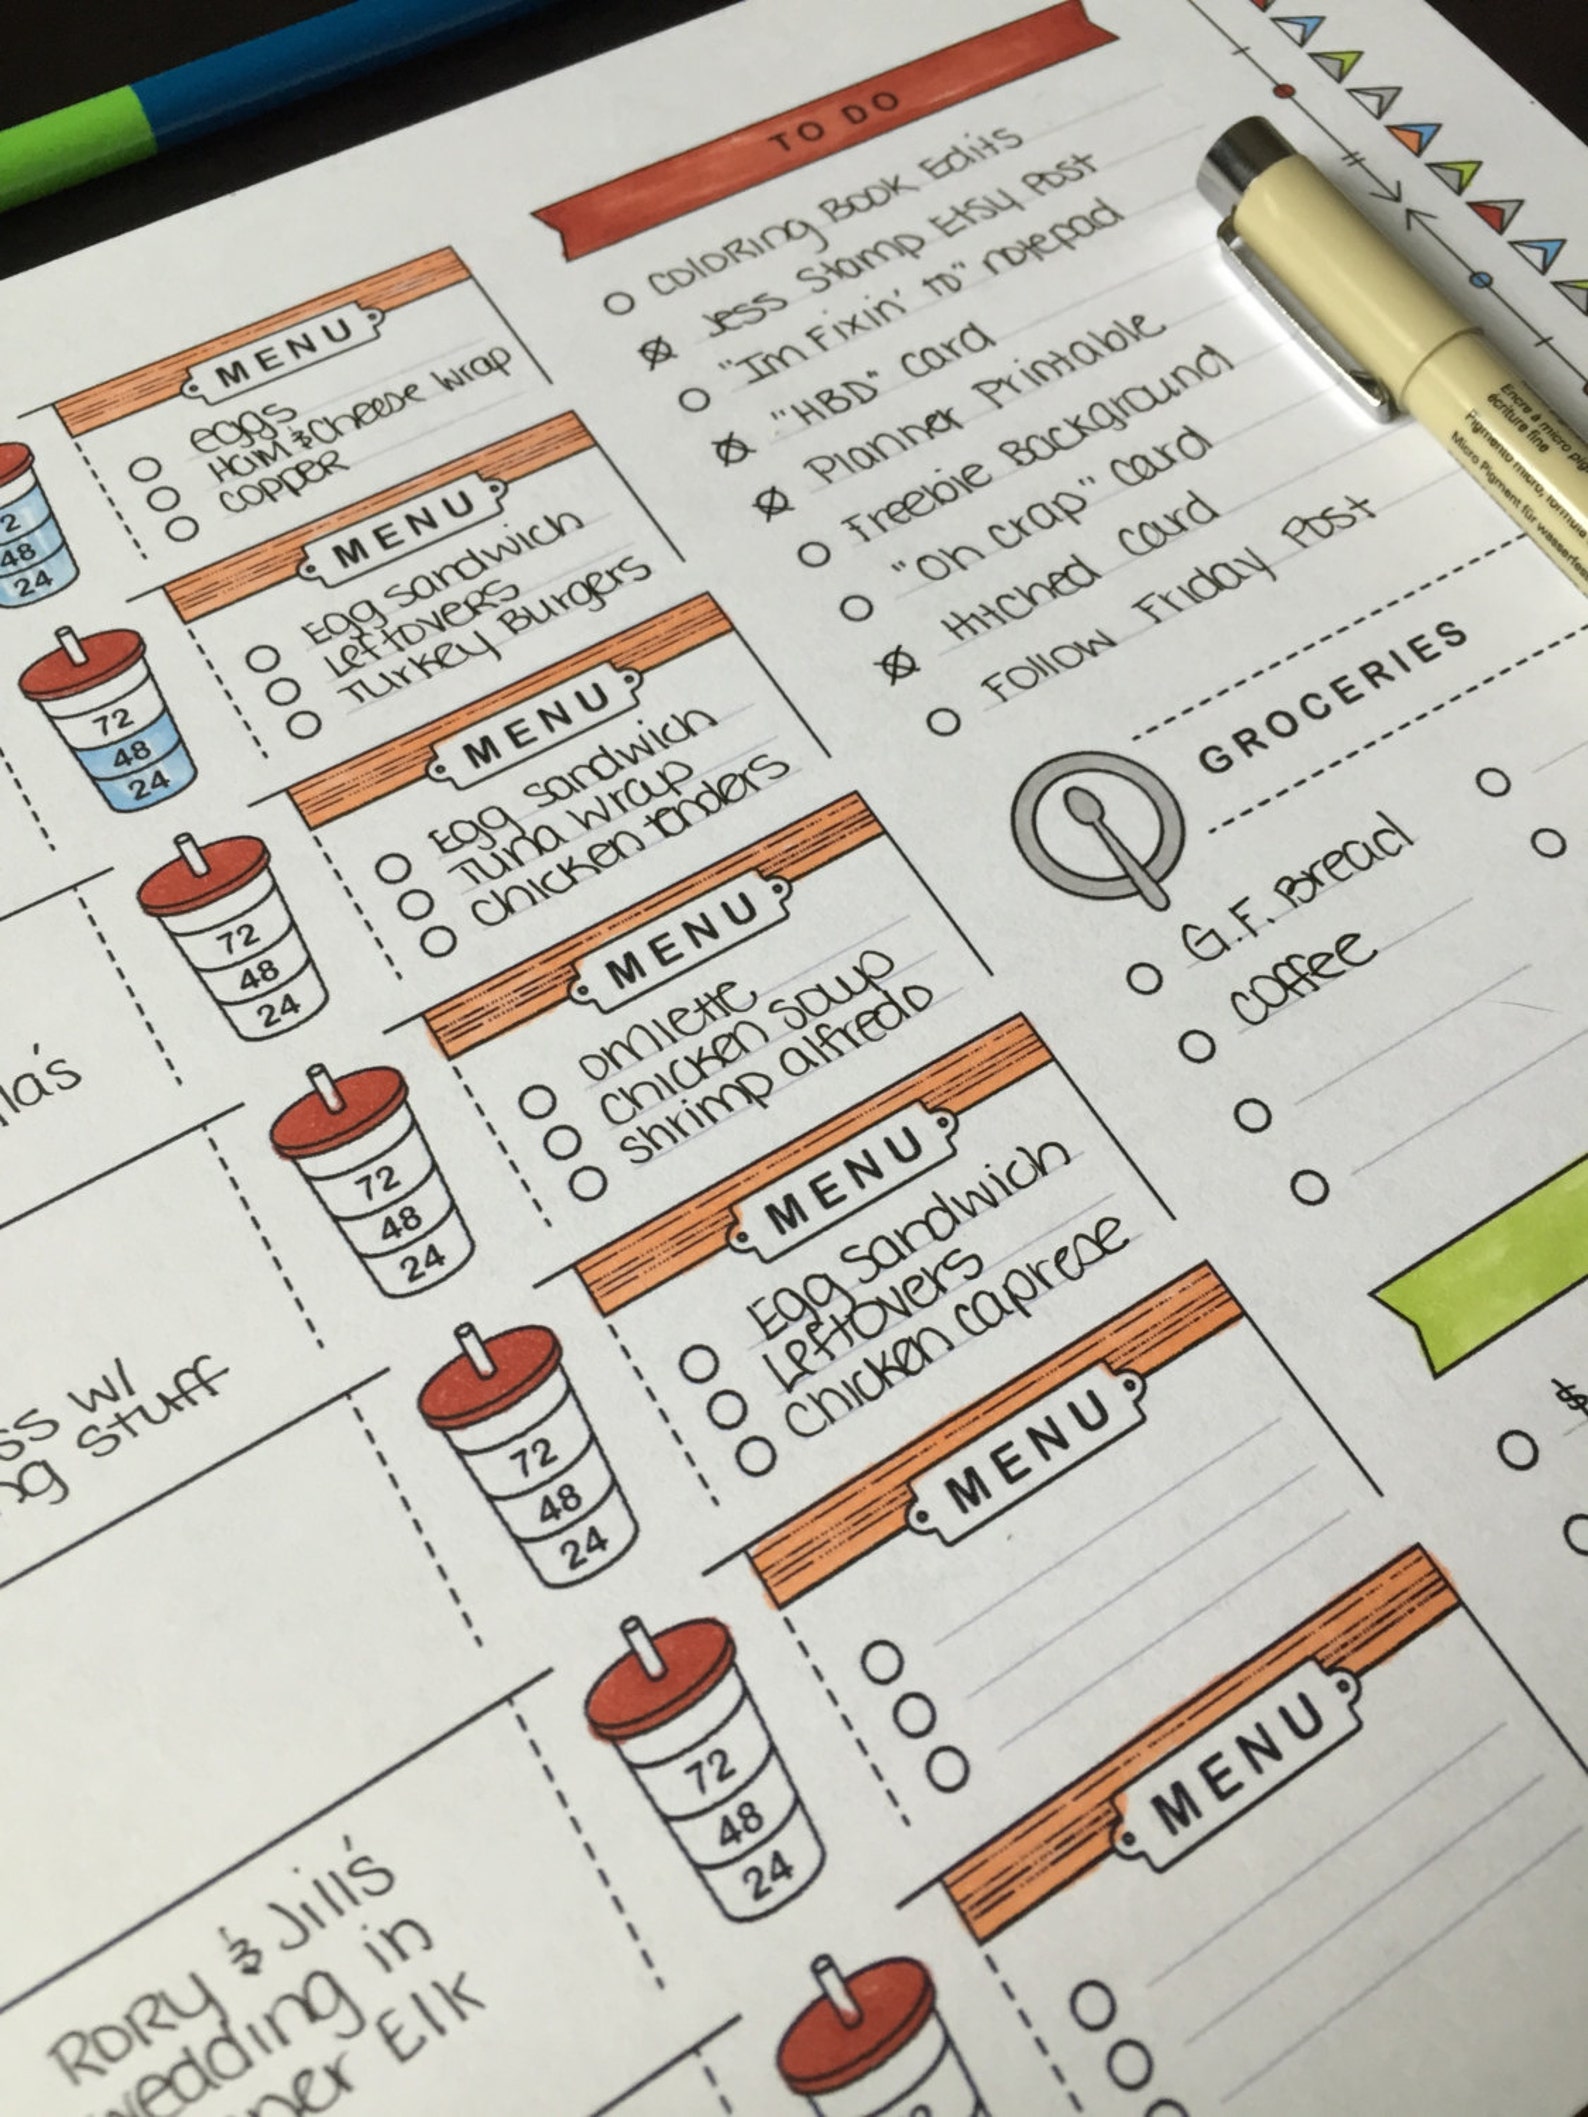 TO DO
Coloring Book Edits
Jess Stamp Etsy Post
"Im Fixin' to" notepad
"HBD" card
Planner Printable
Freebie Background
"Oh Crap" card
Hitched card
Follow Friday Post
GROCERIES
G.F. Bread
coffee
$
MENU
eggs
Ham & Cheese Wrap
copper
MENU
Egg Sandwich
Leftovers
Turkey Burgers
MENU
Egg Sandwich
Tuna Wrap
Chicken tenders
MENU
omlette
Chicken Soup
Shrimp alfredo
MENU
Egg Sandwich
Leftovers
Chicken caprese
MENU
MENU
2
48
24
72
48
24
72
48
24
72
48
24
72
48
24
72
48
24
w/
Stuff
Rory & Jill's
wedding in
Elk
Encre à micro
écriture fine
Pigmento micro,
Micro Pigment für